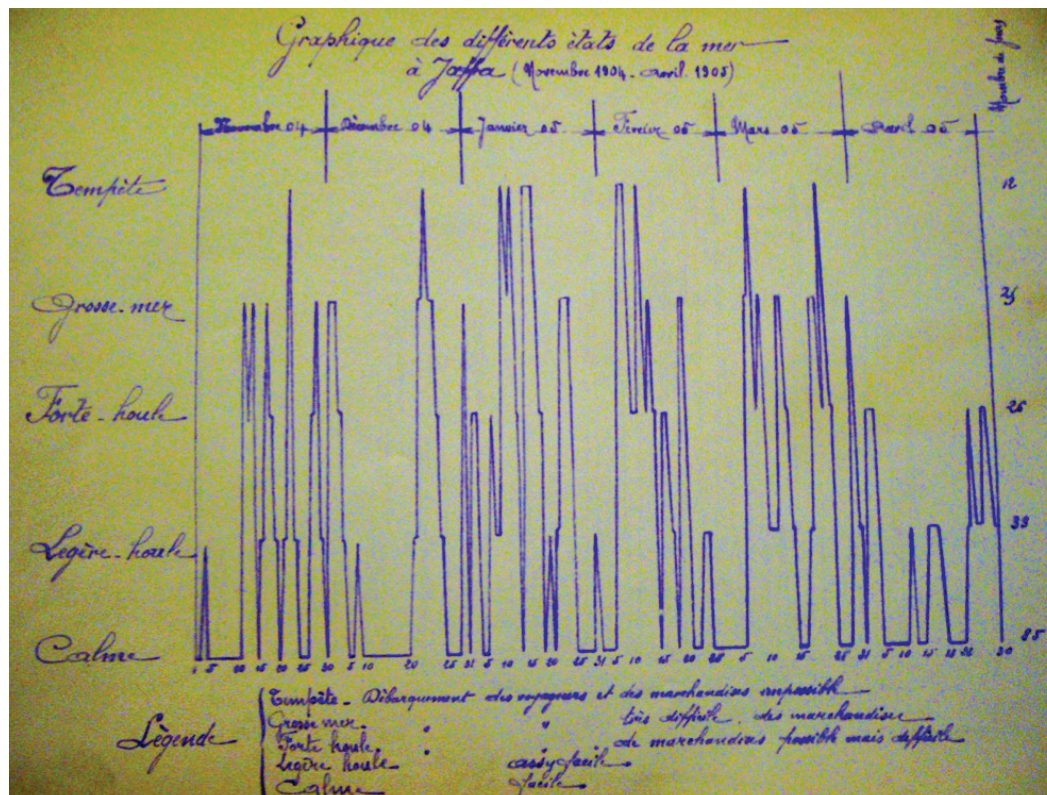 Graphique des différents états de la mer
à Jaffa (Novembre 1904 - Avril 1905)
Nombre de jours
Novembre 04 Décembre 04 Janvier 05 Février 05 Mars 05 Avril 05
Tempête 12
Grosse-mer 25
Forte-houle 26
Legère-houle 33
Calme 85
1 5 10 15 20 25 30 5 10 20 25 31 5 10 15 20 25 31 5 10 15 20 25 5 10 15 25 31 5 10 15 30
Légende
Tempête - Débarquement des voyageurs et des marchandises impossible
Grosse mer - " " très difficile, des marchandises
Forte houle. " de marchandises possible mais difficile
Legère houle - assez facile -
Calme facile -